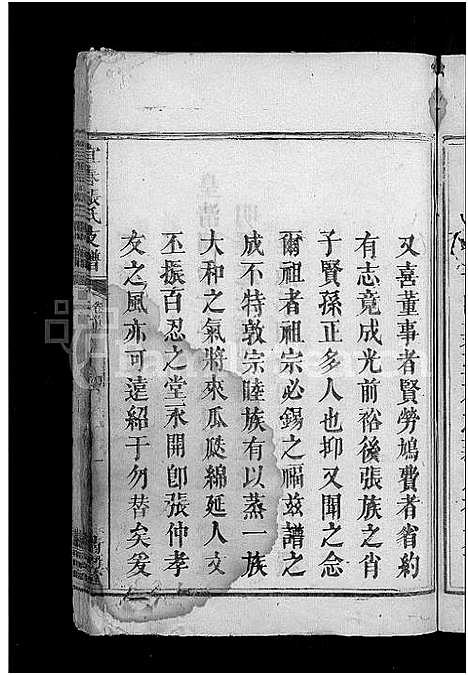 又喜董事者賢勞鳩費者省約
有志竟成光前裕後張族之肖
子賢孫正多人也抑又聞之念
爾祖者祖宗必錫之福茲譜之
成不特敦宗睦族有以蒸一族
大和之氣將來瓜瓞綿延人文
丕振百忍之堂永開卽張仲孝
友之風亦可遠紹于勿替矣爰
宜春張氏支譜
卷首